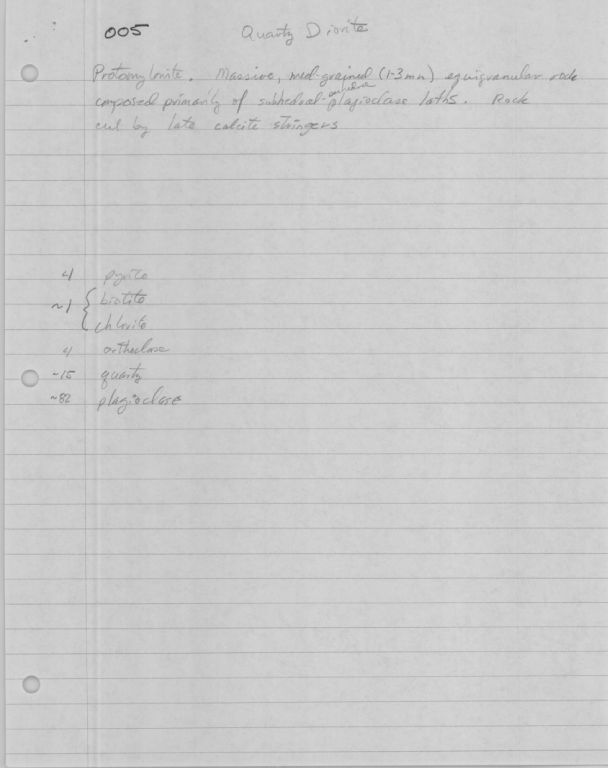 005 Quartz Diorite
Protomylonite. Massive, med-grained (1-3mm) equigranular rock
euhedral
composed primarily of subhedral- plagioclase laths. Rock
cut by late calcite stringers
<1 pyrite
~1 { biotite
chlorite
<1 orthoclase
~15 quartz
~82 plagioclase